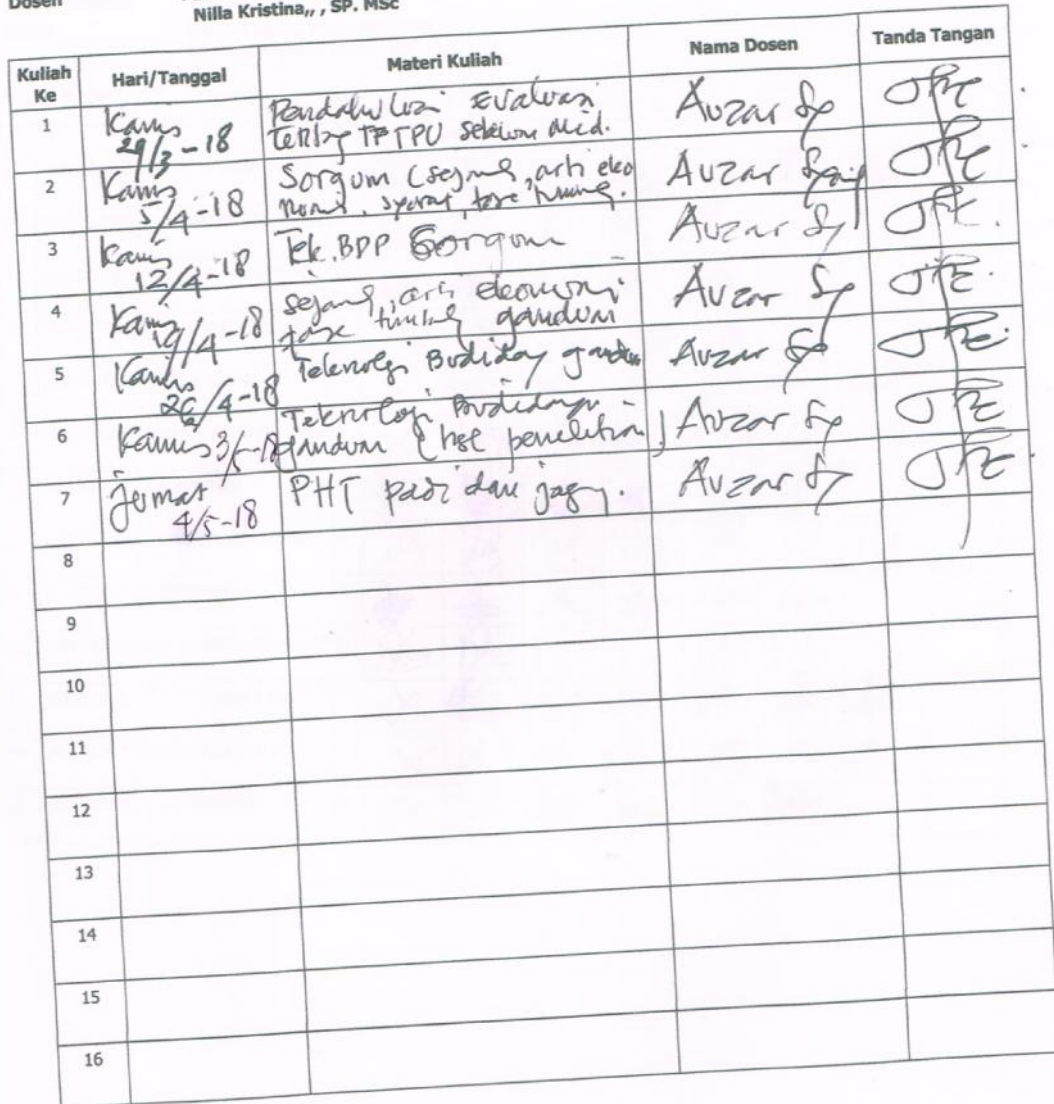 Dosen
Nilla Kristina,, , SP. MSc
Kuliah Ke Hari/Tanggal Materi Kuliah Nama Dosen Tanda Tangan
1 Kamis 29/3-18 Evaluasi TPU Mid. Auzar
2 Kamis 5/4-18 Sorgum (sejarah, arti eko nomi, syarat, Auzar
3 Kamis 12/4-18 Tek. BPP Sorgum Auzar
4 Kamis 19/4-18 sejarah, arti ekonomi gandum Auzar
5 Kamis 26/4-18 Teknologi Budidaya gandum Auzar
6 Kamis 3/5-18 Teknologi Budidaya gandum penelitian Auzar
7 Jumat 4/5-18 PHT padi dan jagung. Auzar
8
9
10
11
12
13
14
15
16